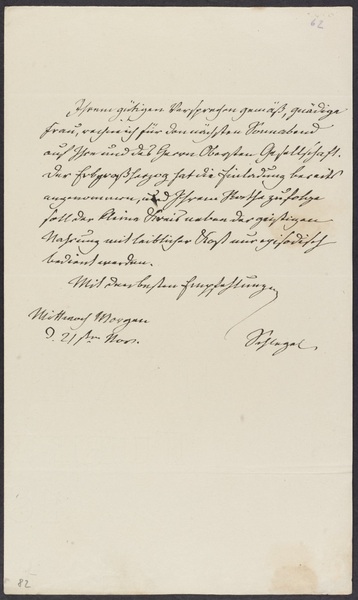 62
Ihrem gütigen Versprechen gemäß, gnädige
Frau, rechne ich für den nächsten Sonnabend
auf Ihre und des Herrn Obersten Gesellschaft.
Der Erbgroßherzog hat die Einladung bereits
angenommen, und Ihrem Rathe zufolge
soll der kleine Kreis neben der geistigen
Nahrung mit leiblicher Kost nur episodisch
bedient werden.
Mit den besten Empfehlungen
Mittwoch Morgen
d. 21sten Nov.
Schlegel
82